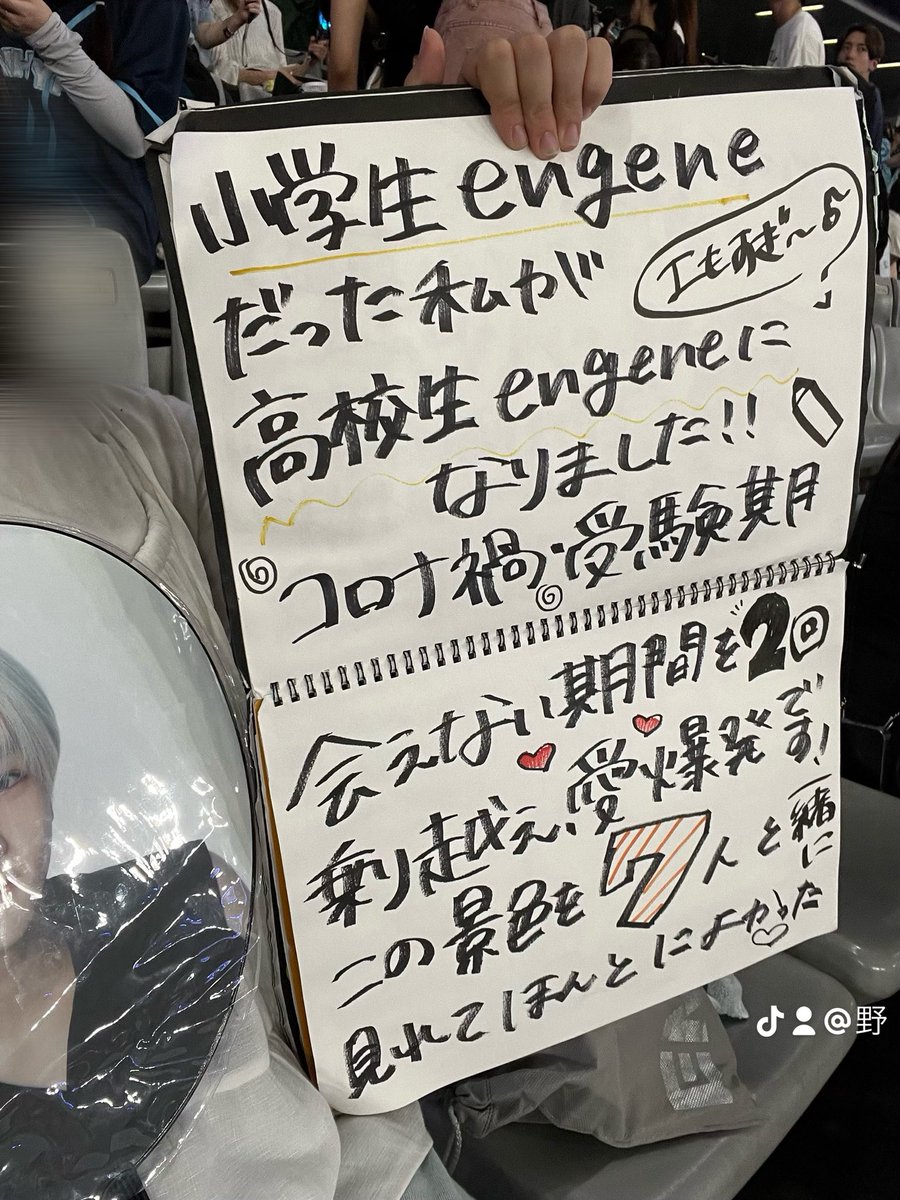 小学生engene
だった私が
エモすぎ〜
高校生engeneに
なりました!!
コロナ禍・受験期
会えない期間を2回
乗り越え、愛爆発です!
この景色を7人と一緒に
見れてほんとによかった
@野